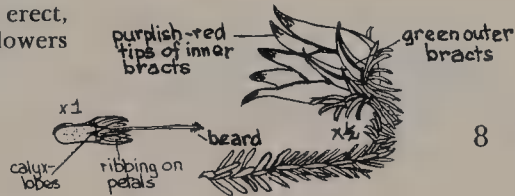 erect,
lowers
purplish-red
tips of inner
bracts
green outer
bracts
x1
beard
x½
8
calyx-
lobes
ribbing on
petals